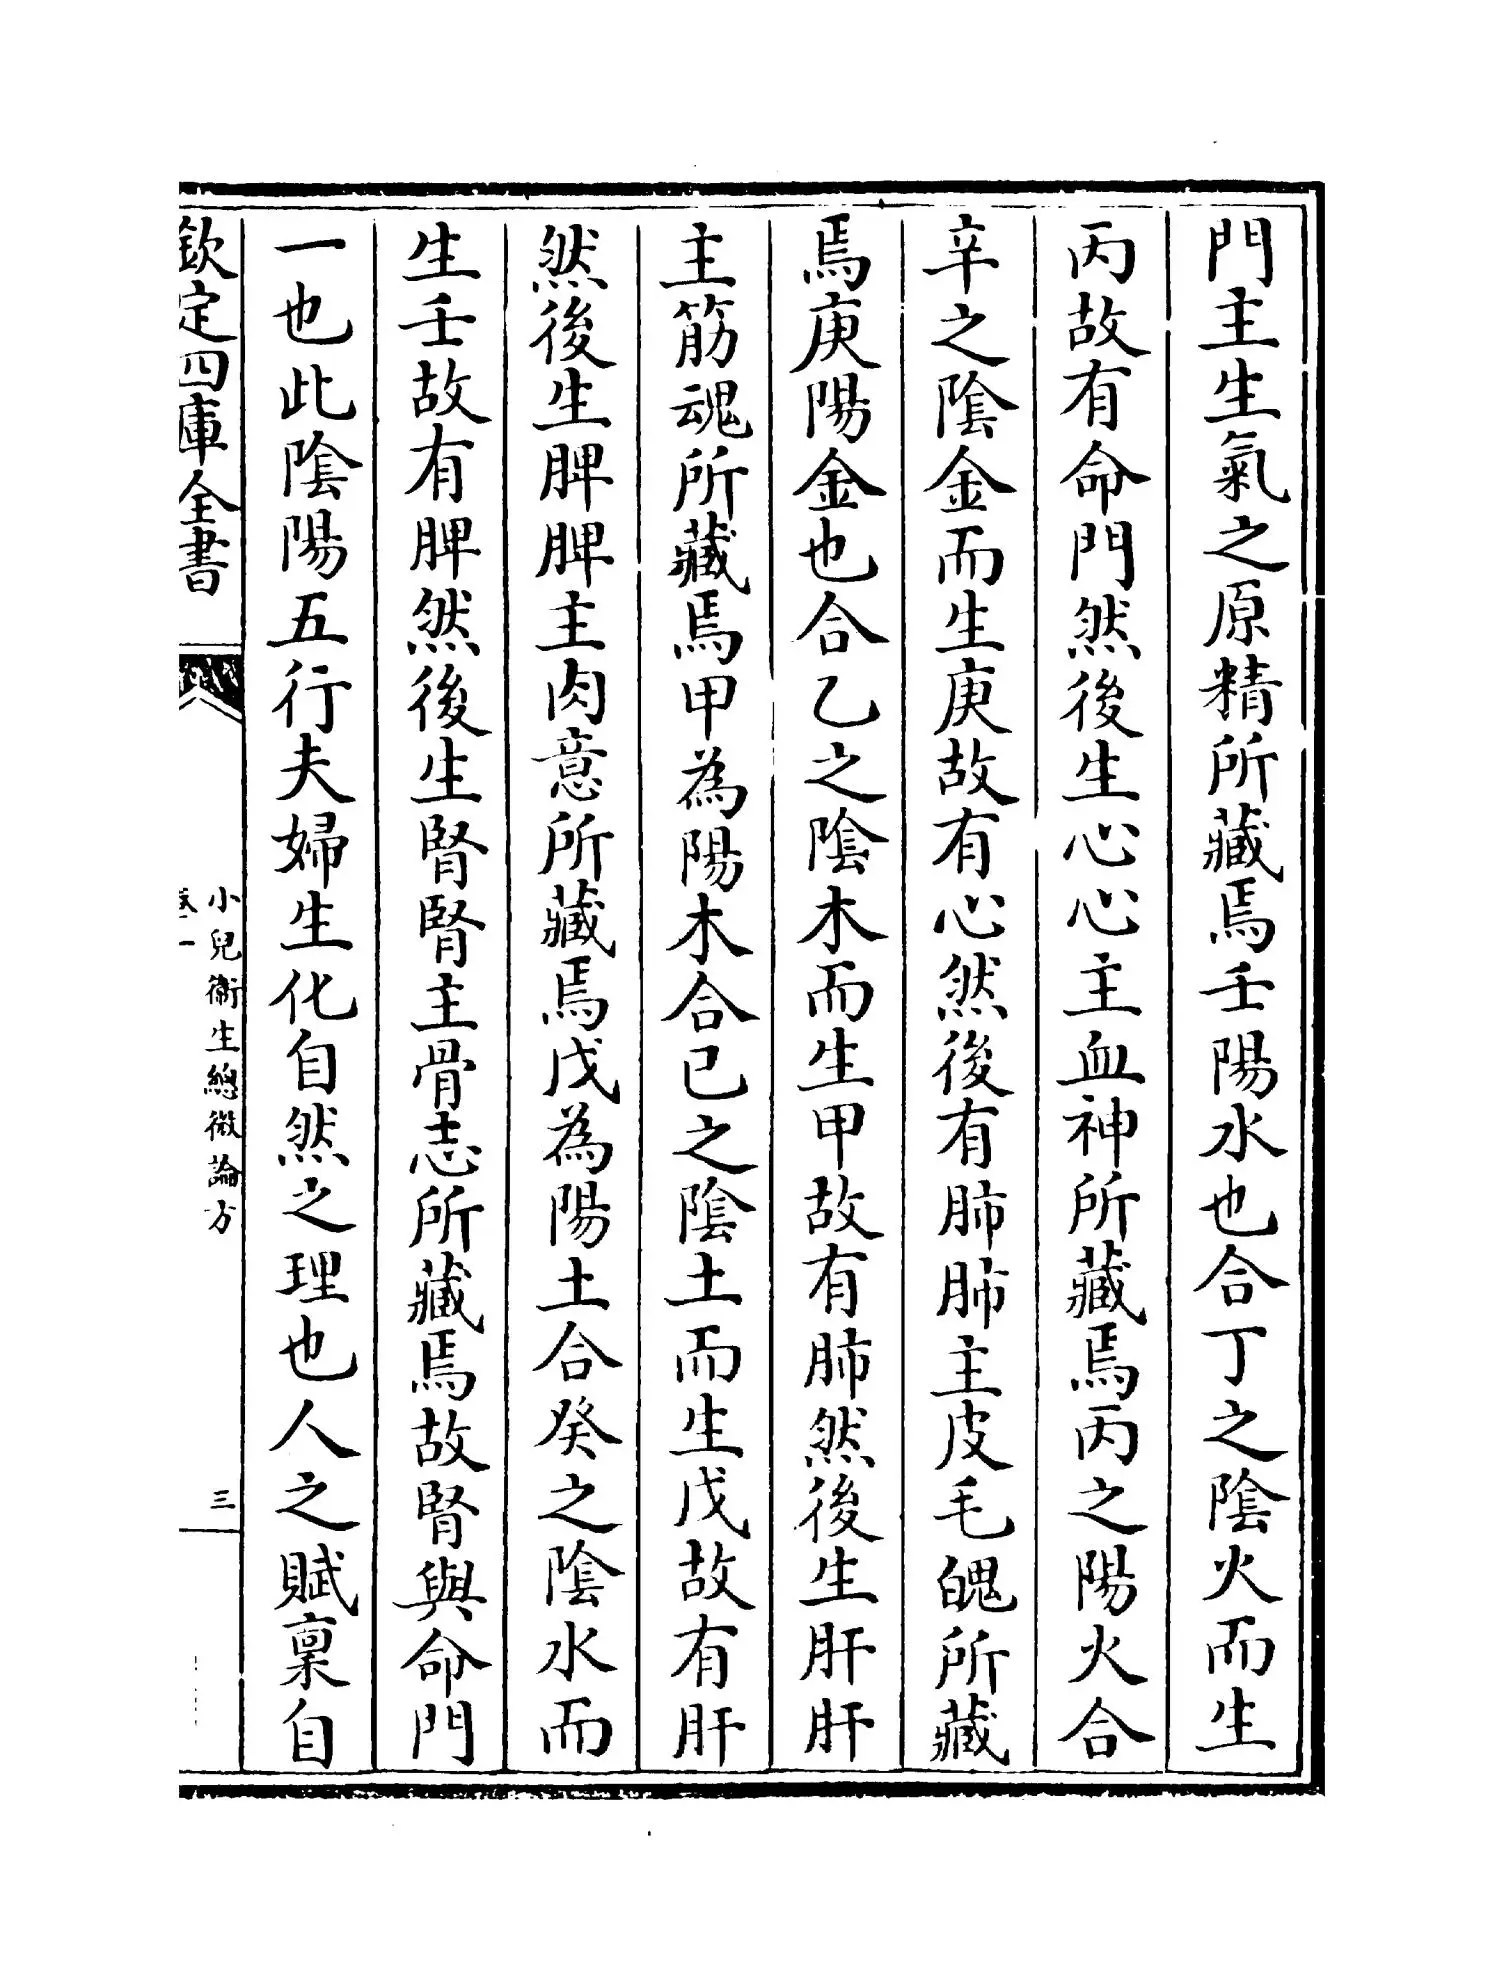 門主生氣之原精所藏焉壬陽水也合丁之陰火而生
丙故有命門然後生心心主血神所藏焉丙之陽火合
辛之陰金而生庚故有心然後有肺肺主皮毛魄所藏
焉庚陽金也合乙之陰木而生甲故有肺然後生肝肝
主筋魂所藏焉甲為陽木合已之陰土而生戊故有肝
然後生脾脾主肉意所藏焉戊為陽土合癸之陰水而
生壬故有脾然後生腎腎主骨志所藏焉故腎與命門
一也此陰陽五行夫婦生化自然之理也人之賦稟自
欽定四庫全書
小兒衛生總微論方
卷一
三